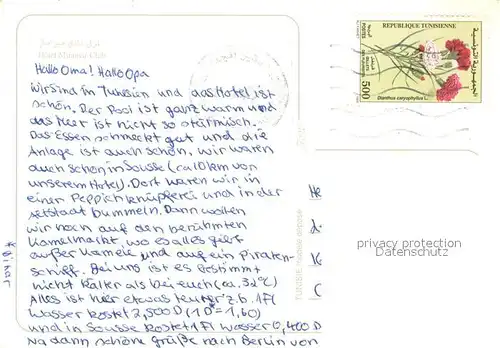 Hotel Miramar Club
Hallo Oma! Hallo Opa
Wir sind in Tunesien und das Hotel ist
schön. Der Pool ist ganz warm und
das Meer ist nicht so stürmisch.
Das Essen schmeckt gut und die
Anlage ist auch schön. Wir waren
auch schon in Sousse (ca 10km von
unserem Hotel). Dort waren wir in
einer Teppichknüpferei und in der
Altstadt bummeln. Dann wollen
wir noch auf den berühmten
Kamelmarkt, wo es alles gibt
außer Kamele und auf ein Piraten-
schiff. Bei uns ist es bestimmt
nicht kälter als bei euch (ca. 32°C)
Alles ist hier etwas teurer z.b. 1 Fl
Wasser kostet 2,500 D (1 D = 1,60)
und in Sousse kostet 1 Fl Wasser 0,400 D
Na dann schöne grüße nach Berlin von
REPUBLIQUE TUNISIENNE
الجمهورية التونسية
POSTES
500
Dianthus caryophyllus L.
privacy protection
AnsichtskartenCenter